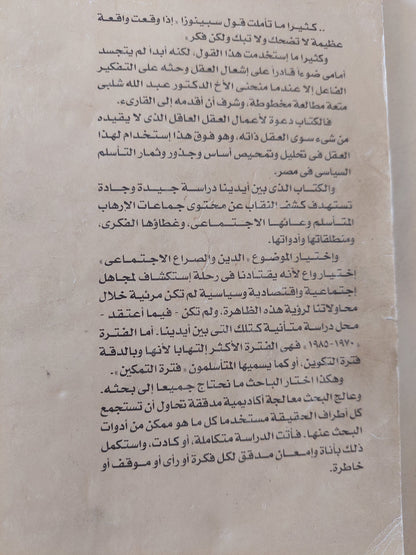 .. كثيرا ما تأملت قول سبينوزا «إذا وقعت واقعة
عظيمة لا تضحك ولا تبك ولكن فكر»
وكثيرا ما إستخدمت هذا القول، لكنه أبدا لم يتجسد
أمامى ضوءا قادرا على إشعال العقل وحثه على التفكير
الفاعل إلا عندما منحنى الأخ الدكتور عبد الله شلبى
متعة مطالعة مخطوطة، وشرف أن أقدمه إلى القارىء.
فالكتاب دعوة لأعمال العقل العاقل الذى لا يقيده
من شىء سوى العقل ذاته، وهو فوق هذا إستخدام لهذا
العقل فى تحليل وتمحيص أساس وجذور وثمار التأسلم
السياسى فى مصر.
والكتاب الذى بين أيدينا دراسة جيدة وجادة
تستهدف كشف النقاب عن محتوى جماعات الارهاب
المتأسلم وعائها الاجتماعى، وغطاؤها الفكرى،
ومنطلقاتها وأدواتها.
وإختيار الموضوع «الدين والصراع الاجتماعى»
إختيار واع لأنه يقتادنا فى رحلة إستكشاف لمجاهل
إجتماعية وإقتصادية وسياسية لم تكن مرئية خلال
محاولاتنا لرؤية هذه الظاهرة، ولم تكن - فيما أعتقد -
محل دراسة متأنية كتلك التى بين أيدينا. أما الفترة
«١٩٧٠-١٩٨٥» فهى الفترة الأكثر إلتهابا لأنها وبالدقة
فترة التكوين، أو كما يسميها المتأسلمون «فترة التمكين».
وهكذا اختار الباحث ما نحتاج جميعا إلى بحثه.
وعالج البحث معالجة أكاديمية مدققة تحاول أن تستجمع
كل أطراف الحقيقة مستخدما كل ما هو ممكن من أدوات
البحث عنها. فأتت الدراسة متكاملة، أو كادت، واستكمل
ذلك بأناة وإمعان مدقق لكل فكرة أو رأى أو موقف أو
خاطرة.